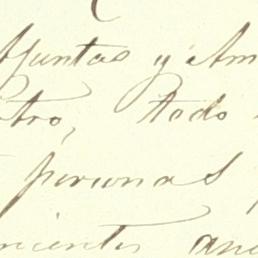 Ajuntas y Am
tro, todo
personas
cientes an